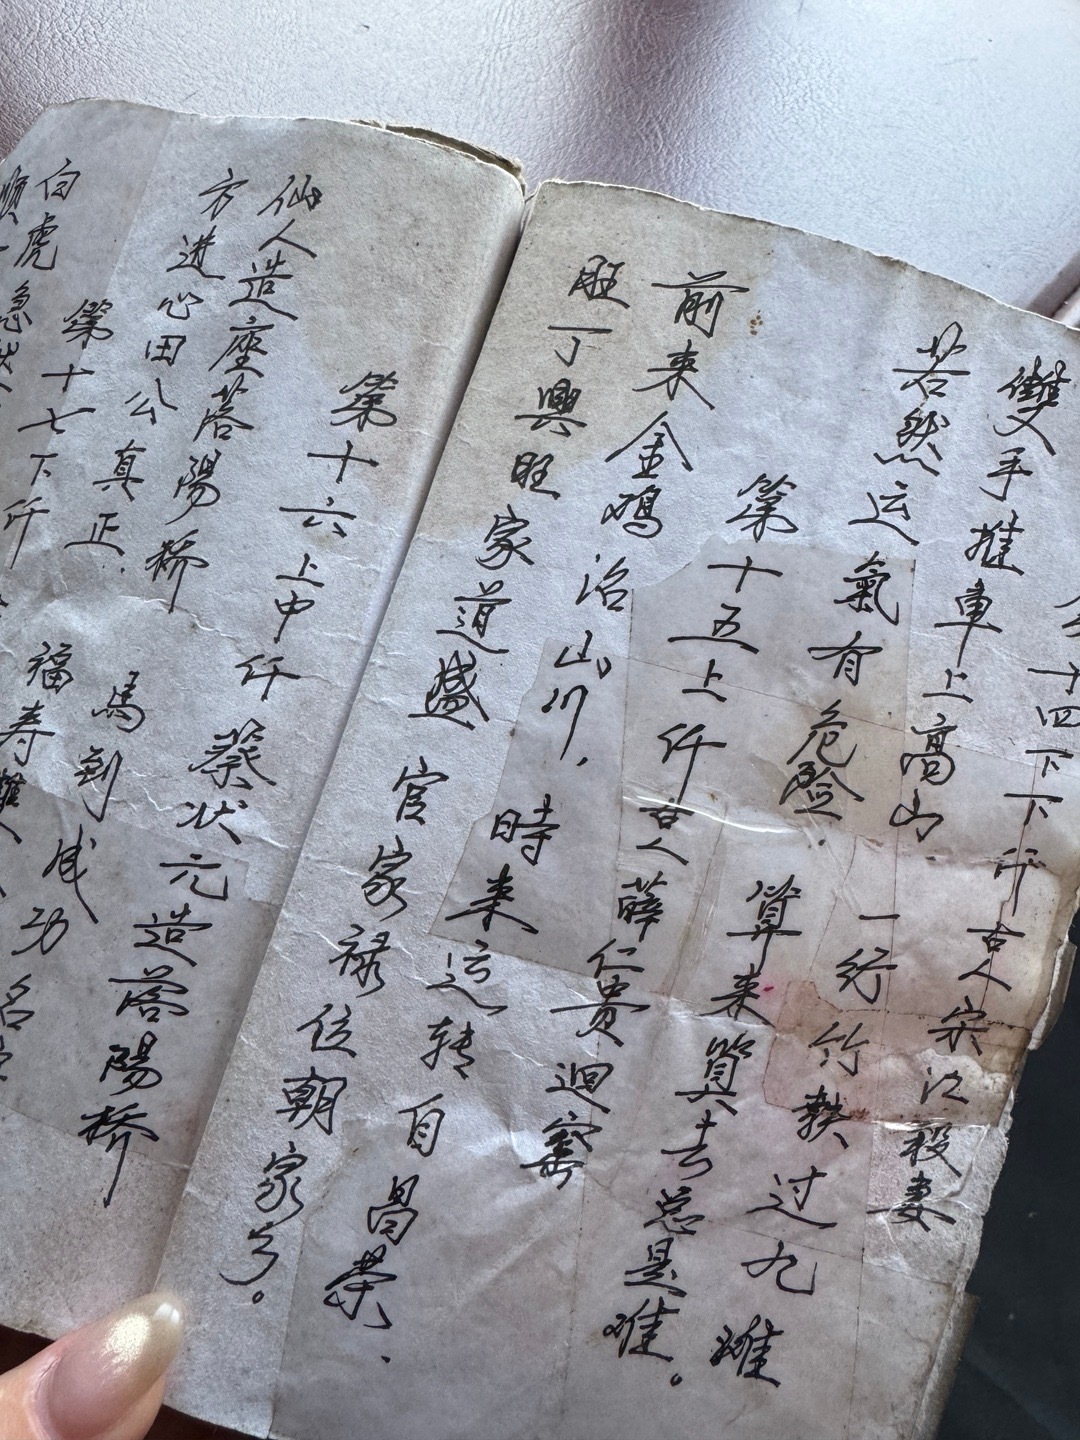 十四下下仟古人宋江殺妻
雙手推車上高山 一行竹執过九难
若然运氣有危险. 算来算去总是难。
第十五上仟古人薛仁贵迴窑
前来金鸡治山川, 時来运转自昌荣.
旺丁興旺家道盛 官家禄位朝家
第十六上中仟蔡状元造落陽桥
仙人造座落陽桥 馬到成功名
方进心田公真正. 福寿
第十七下仟
白虎
順 急